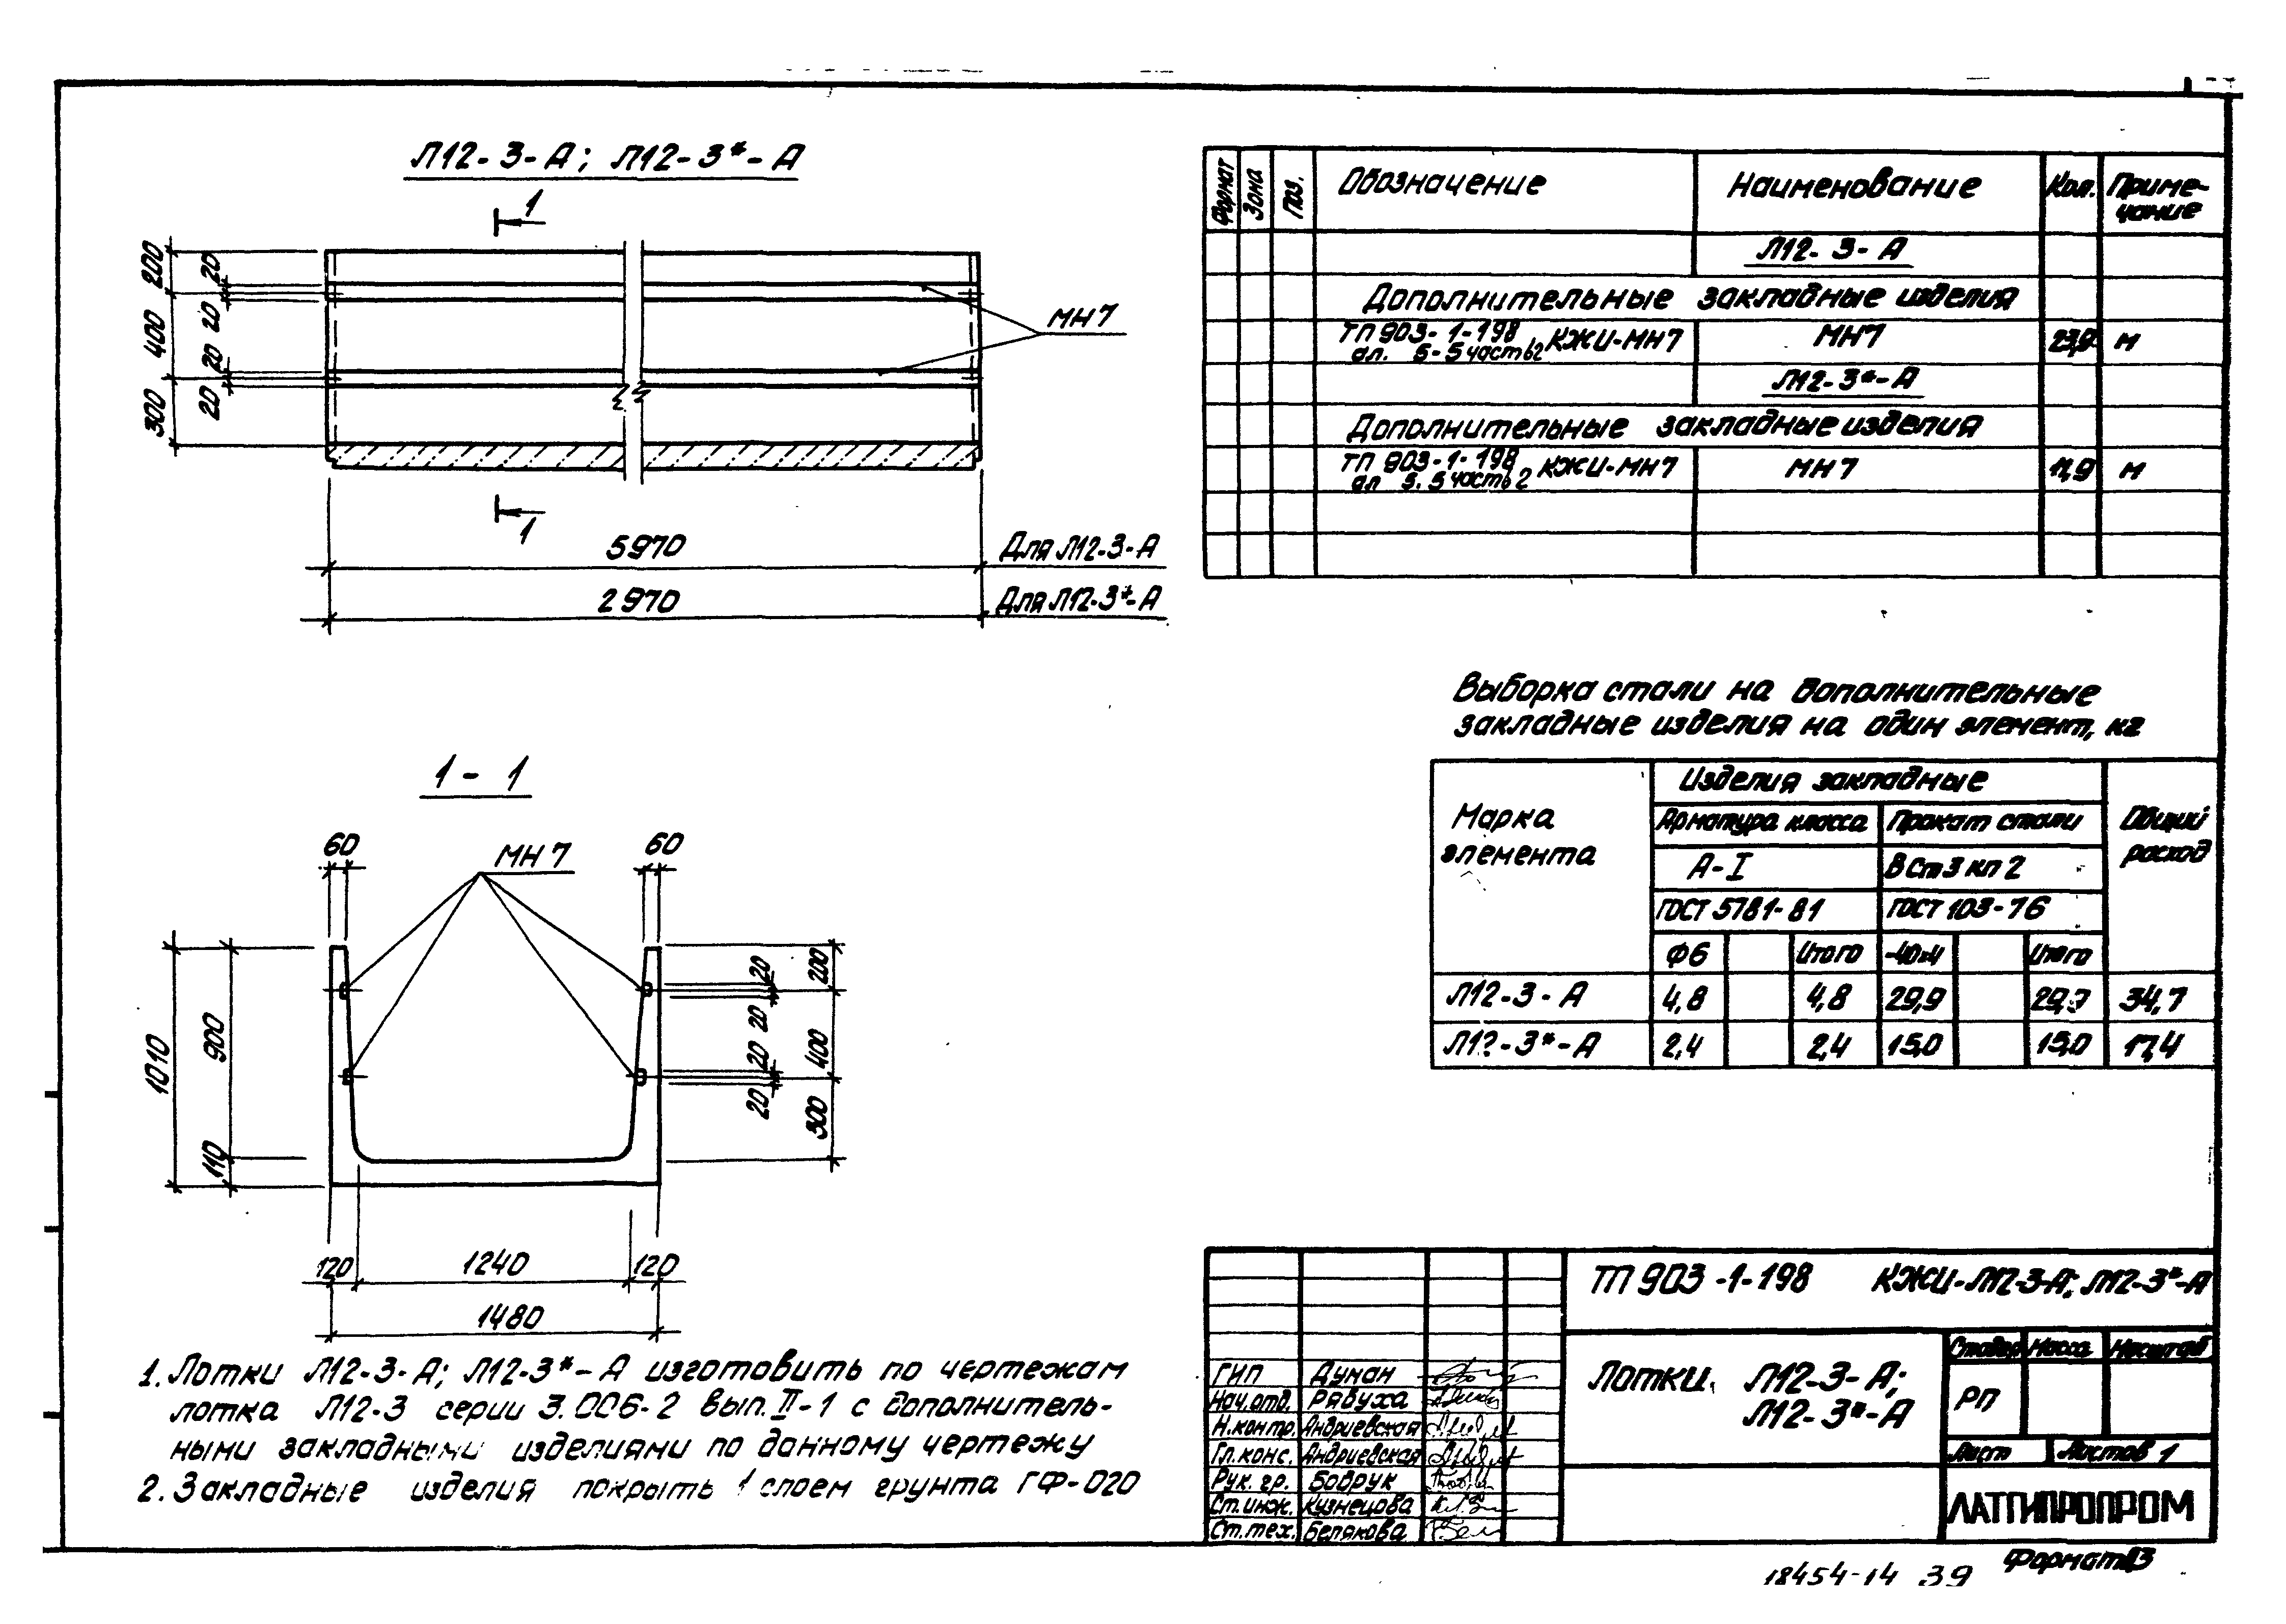 Л12-3-А; Л12-3*-А
1
200
20
20
400
20
20
300
МН7
1
5970
Для Л12-3-А
2970
Для Л12-3*-А
1-1
60
МН7
60
1010
900
110
20
20
20
20
200
400
300
120
1240
120
1480
1. Лотки Л12-3-А; Л12-3*-А изготовить по чертежам
лотка Л12-3 серии 3.006-2 вып. II-1 с дополнитель-
ными закладными изделиями по данному чертежу
2. Закладные изделия покрыть 1 слоем грунта ГФ-020
Формат Зона Поз. Обозначение Наименование Кол. Приме-
чание
Л12-3-А
Дополнительные закладные изделия
ТП 903-1-198 КЖИ-МН7 МН7 23,9 м
ал. 5-5 часть 2
Л12-3*-А
Дополнительные закладные изделия
ТП 903-1-198 КЖИ-МН7 МН7 11,9 м
ал 5.5 часть 2
Выборка стали на дополнительные
закладные изделия на один элемент, кг
Марка
элемента
Изделия закладные
Общий
расход
Арматура класса Прокат стали
А-I ВСт3кп2
ГОСТ 5781-81 ГОСТ 103-76
Ф6 Итого -40х4 Итого
Л12-3-А 4,8 4,8 29,9 29,9 34,7
Л12-3*-А 2,4 2,4 15,0 15,0 17,4
ТП 903-1-198 КЖИ-Л12-3-А; Л12-3*-А
Лотки Л12-3-А;
Л12-3*-А
Стадия Масса Масштаб
РП
Лист Листов 1
ЛАТГИПРОПРОМ
ГИП Думан
Нач.отд. Рябуха
Н.контр. Андриевская
Гл.конс. Андриевская
Рук.гр. Бобрук
Ст.инж. Кузнецова
Ст.тех. Белякова
18454-14 39
Формат А3